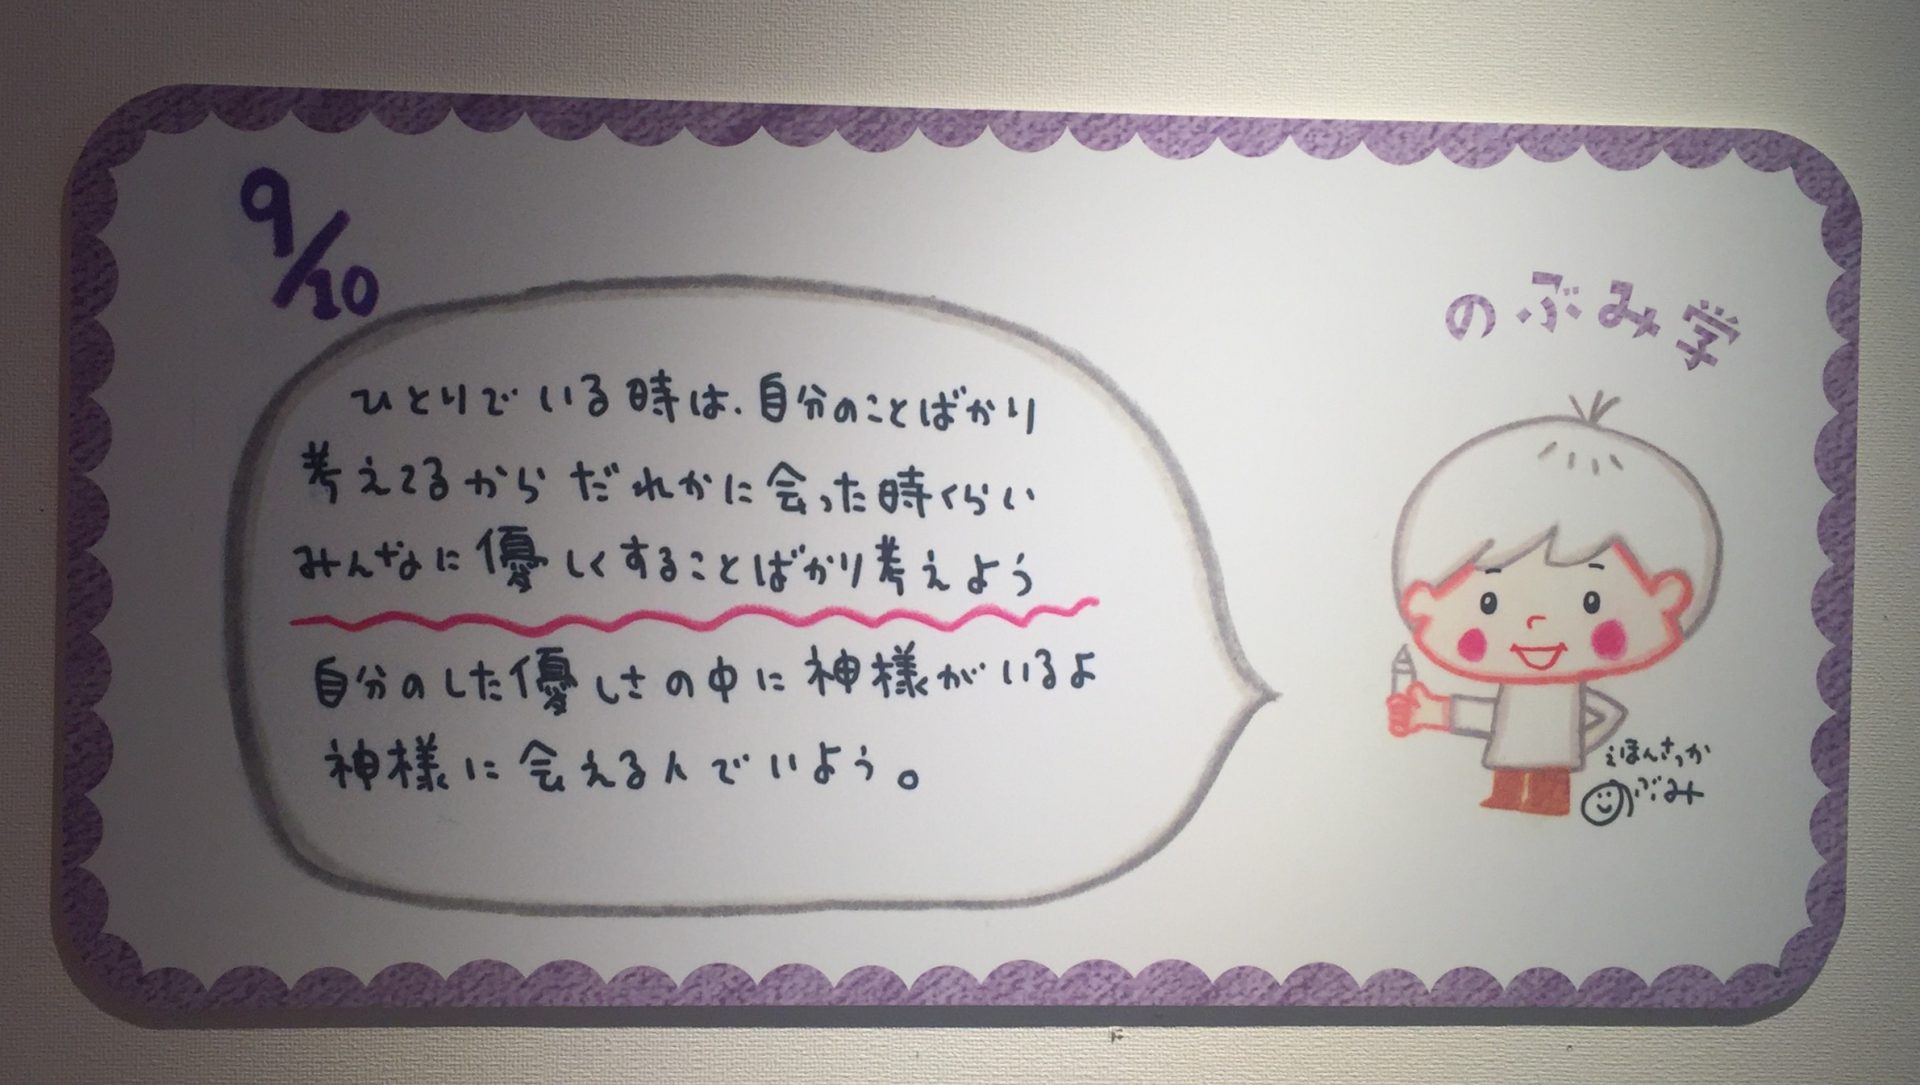 9/10
のぶみ学
ひとりでいる時は、自分のことばかり
考えてるから だれかに会った時くらい
みんなに優しくすることばかり考えよう
自分のした優しさの中に神様がいるよ
神様に会えるんでいよう。
えほんさっか
のぶみ